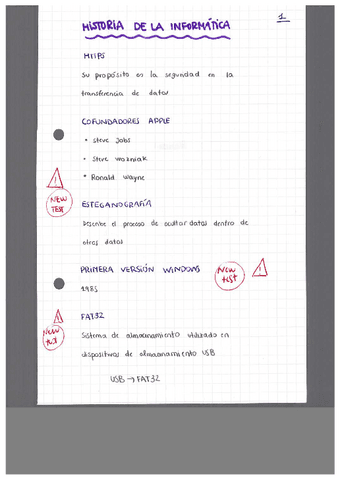 1
HISTORIA DE LA INFORMÁTICA
HTTPS
Su propósito es la seguridad en la
transferencia de datos
COFUNDADORES APPLE
• Steve Jobs
• Steve Wozniak
• Ronald Wayne
!
NEW
TEST
ESTEGANOGRAFÍA
Describe el proceso de ocultar datos dentro de
otros datos
PRIMERA VERSIÓN WINDOWS
New
test
!
1985
!
FAT32
New
test
Sistema de almacenamiento utilizado en
dispositivos de almacenamiento USB
USB → FAT32